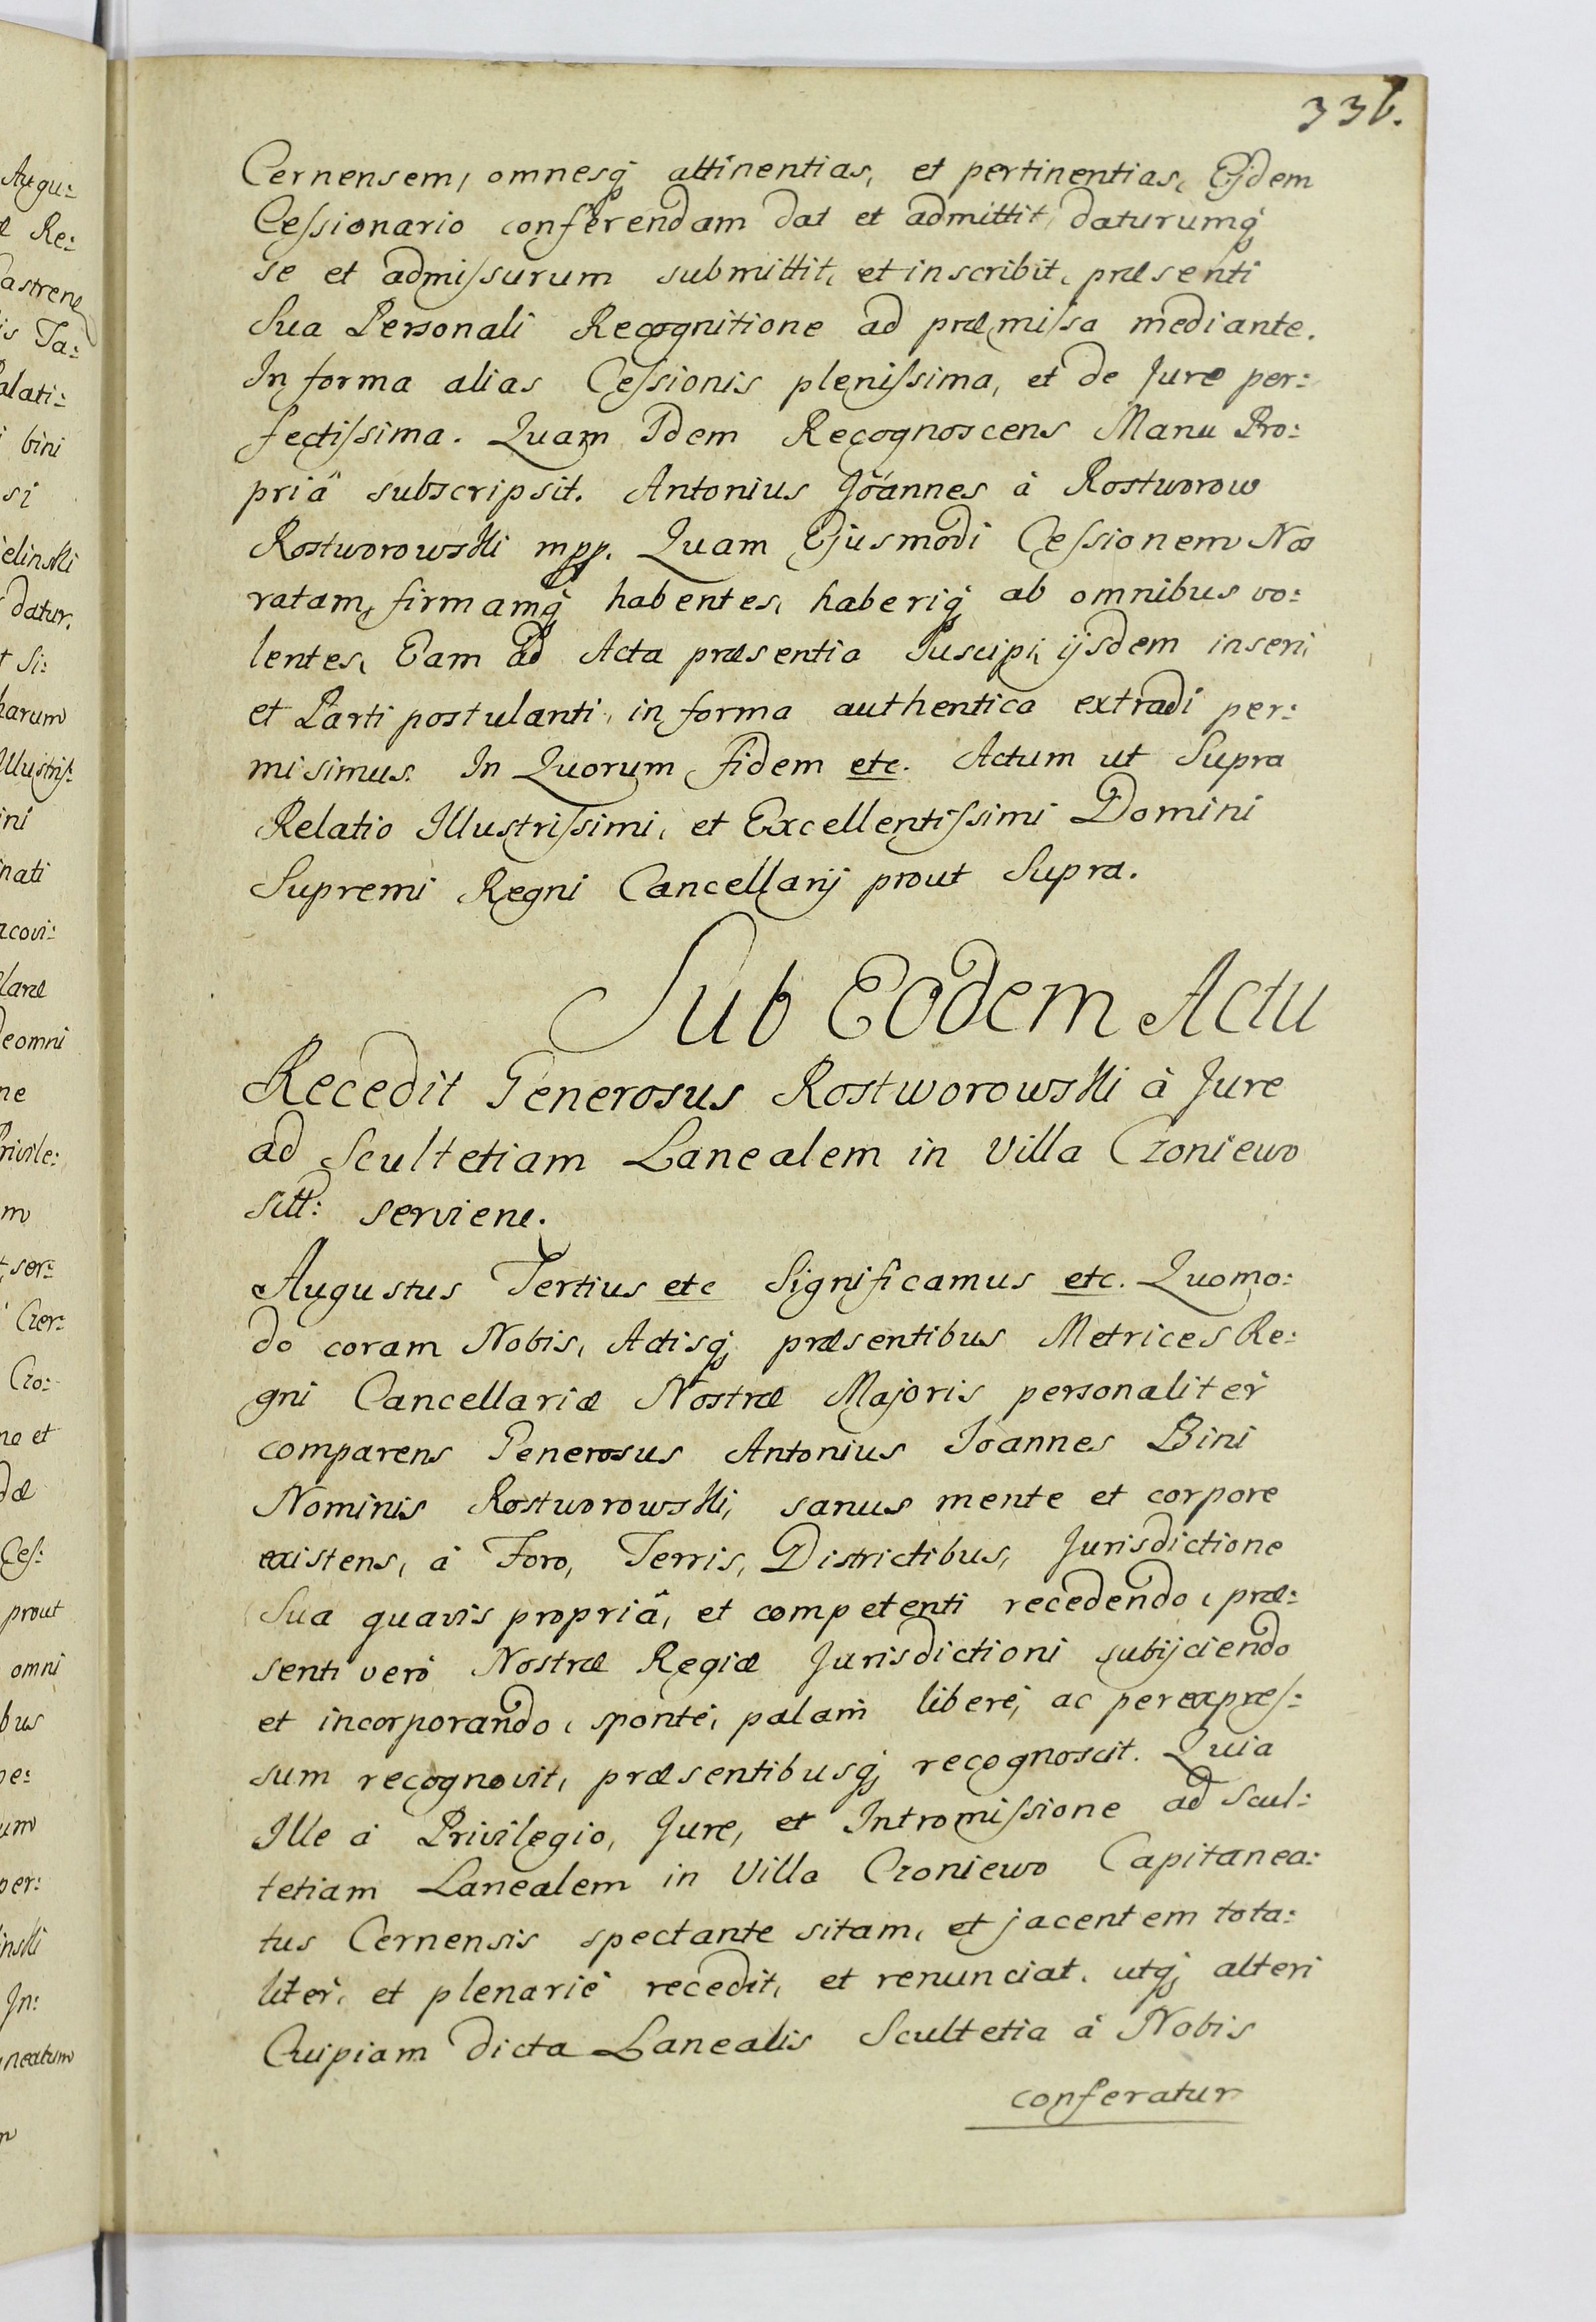 336.
Cernensem, omnesq̧ attinentias, et pertinentias, Ejdem
Ceſsionario conferendam dat et admittit, daturumq̧
se et admiſsurum submittit, et inscribit, præsenti
Sua Personali Recognitione ad præmiſsa mediante.
In forma alias Ceſsionis pleniſsima, et de Jure per:
fectiſsima. Quam Idem Recognoscens Manu Pro:
priâ subscripsit. Antonius Joannes à Rostworow
Rostworowski mpp. Quam Ejusmodi Ceſsionem Nos
ratam, firmamq̧ habentes, haberiq̧ ab omnibus vo:
lentes, Eam ad Acta præsentia Suscipi, ijsdem inseri,
et Parti postulanti, in forma authentica extradi per:
misimus. In Quorum fidem etc. Actum ut Supra
Relatio Illustriſsimi, et Excellentiſsimi Domini
Supremi Regni Cancellarij prout Supra.
Sub Eodem Actu
Recedit Generosus Rostworowski à Jure
ad Scultetiam Lanealem in Villa Croniewo
sitt: serviene.
Augustus Tertius etc Significamus etc. Quomo:
do coram Nobis, Actisq̧ præsentibus Metrices Re:
gni Cancellariæ Nostræ Majoris personalitèr
comparens Generosus Antonius Joannes Bini
Nominis Rostworowski, sanus mente et corpore
existens, à Foro, Terris, Districtibus, Jurisdictione
Sua quavis propriâ, et competenti recedendo, præ:
senti verò Nostræ Regiæ Jurisdictioni subijciendo
et incorporando, spontè, palam liberè, ac per expreſ:
sum recognovit, præsentibusq̧ recognoscit. Quia
Ille à Privilegio, Jure, et Intromiſsione ad Scul:
tetiam Lanealem in Villa Croniewo Capitanea:
tus Cernensis spectante sitam, et jacentem tota:
litèr, et plenariè recedit, et renunciat, utq̧ alteri
Cuipiam dicta Lanealis Scultetia à Nobis
conferatur